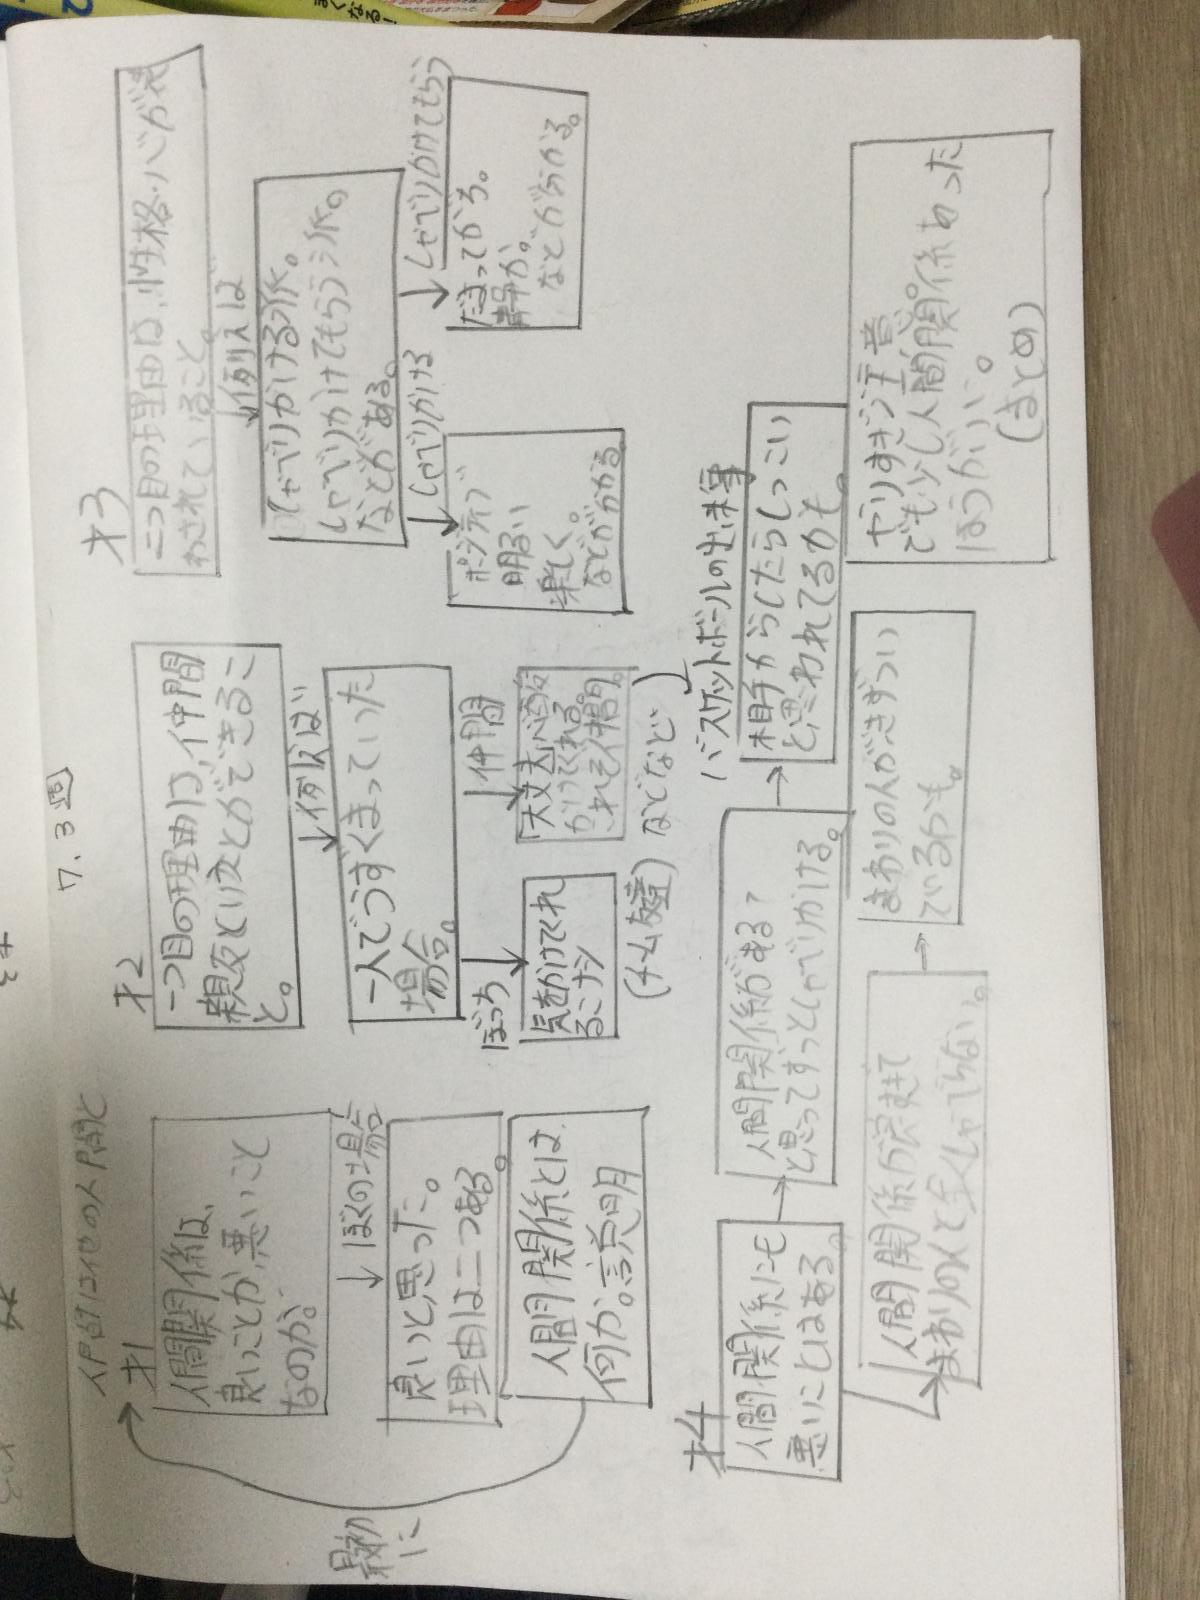 7.3週
人間は他の人間と
最初に
才1
人間関係は、
良いことか、悪いこと
なのか。
↓ぼくの場合
良いと思った。
理由は二つある。
人間関係とは
何か。説明
才2
一つ目の理由は、仲間
親友といえることができるこ
と。
↓例えば
一人でうずくまっていた
場合。
ぼっち
気をかけてくれ
るこナシ
仲間
「大丈夫」心配
かけてくれる。
これぞ仲間。
(チーム友達)などなど
才3
二つ目の理由は、性格・心が表
わされていること。
↓例えば
しゃべりかける派。
しゃべりかけてもらう派。
などがある。
↓しゃべりかける
ポジティブ
明るい
楽しく。
などがわかる
↓しゃべりかけてもらう
だまってがち。
静か。
などが分かる。
才4
人間関係にも
悪いことはある。
人間関係がある?
と思ってずっとしゃべりかける。
バスケットボールの出来事
相手からしたらしっこい
と思われてるかも。
人間関係が
まわりの人と全くしゃべらない。
まわりの人がきずつい
ているかも。
やりすぎ注意。
でも少し人間関係あった
ほうがいい。
(まとめ)